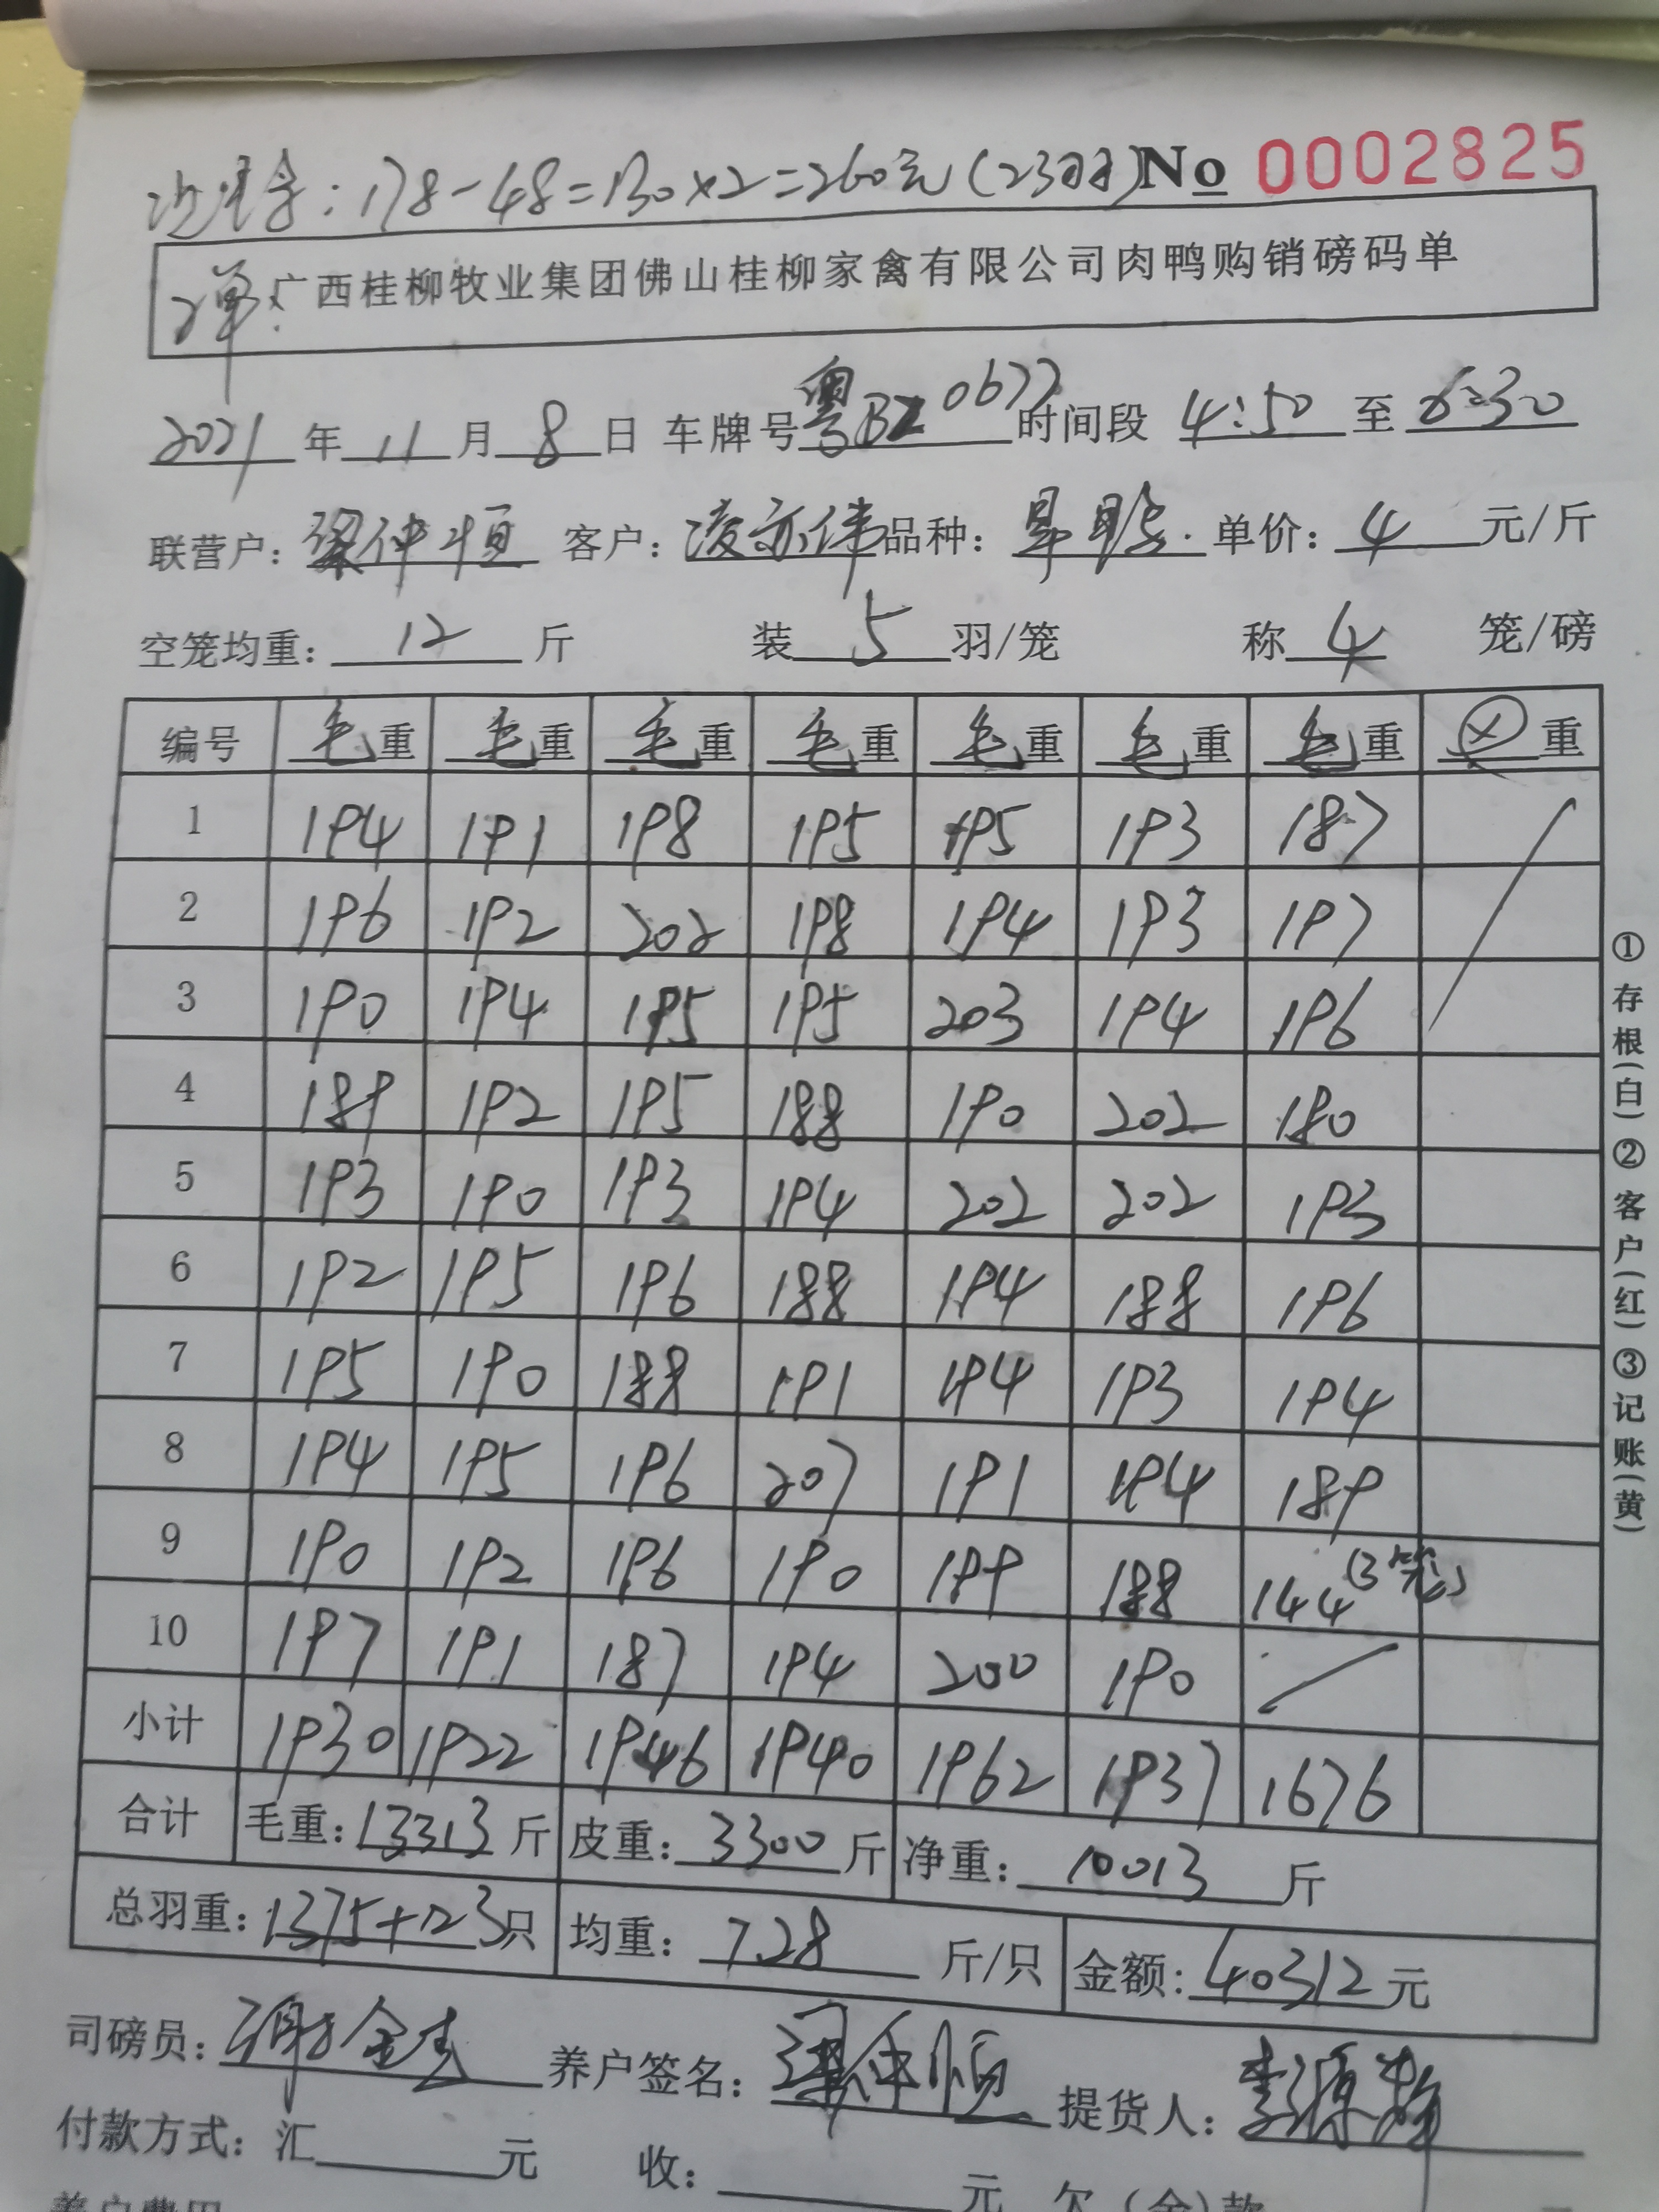 ：178-48=130×2=260元(23羽) No 0002825
单：广西桂柳牧业集团佛山桂柳家禽有限公司肉鸭购销磅码单
2021年11月8日 车牌号粤BZ0677 时间段 4:50 至 6:30
联营户：梁仲恒 客户：凌亦伟 品种： 单价：4元/斤
空笼均重：12斤 装5羽/笼 称4笼/磅
编号 毛重 毛重 毛重 毛重 毛重 毛重 毛重 重
1 194 191 198 195 195 193 187
2 196 192 202 198 194 193 197
3 190 194 195 195 203 194 196
4 189 192 195 188 190 202 180
5 193 190 193 194 202 202 193
6 192 195 196 188 194 188 196
7 195 190 188 191 194 193 194
8 194 195 196 207 191 194 189
9 190 192 196 190 199 188 144(3笼)
10 197 191 187 194 200 190
小计 1930 1922 1946 1940 1962 1937 1676
合计 毛重：13313斤 皮重：3300斤 净重：10013斤
总羽重：1375+23只 均重：7.28斤/只 金额：40312元
司磅员：谢金 养户签名：梁仲恒 提货人：李源
付款方式：汇 元 收： 元 欠(余)款
养户费用
①存根(白)②客户(红)③记账(黄)